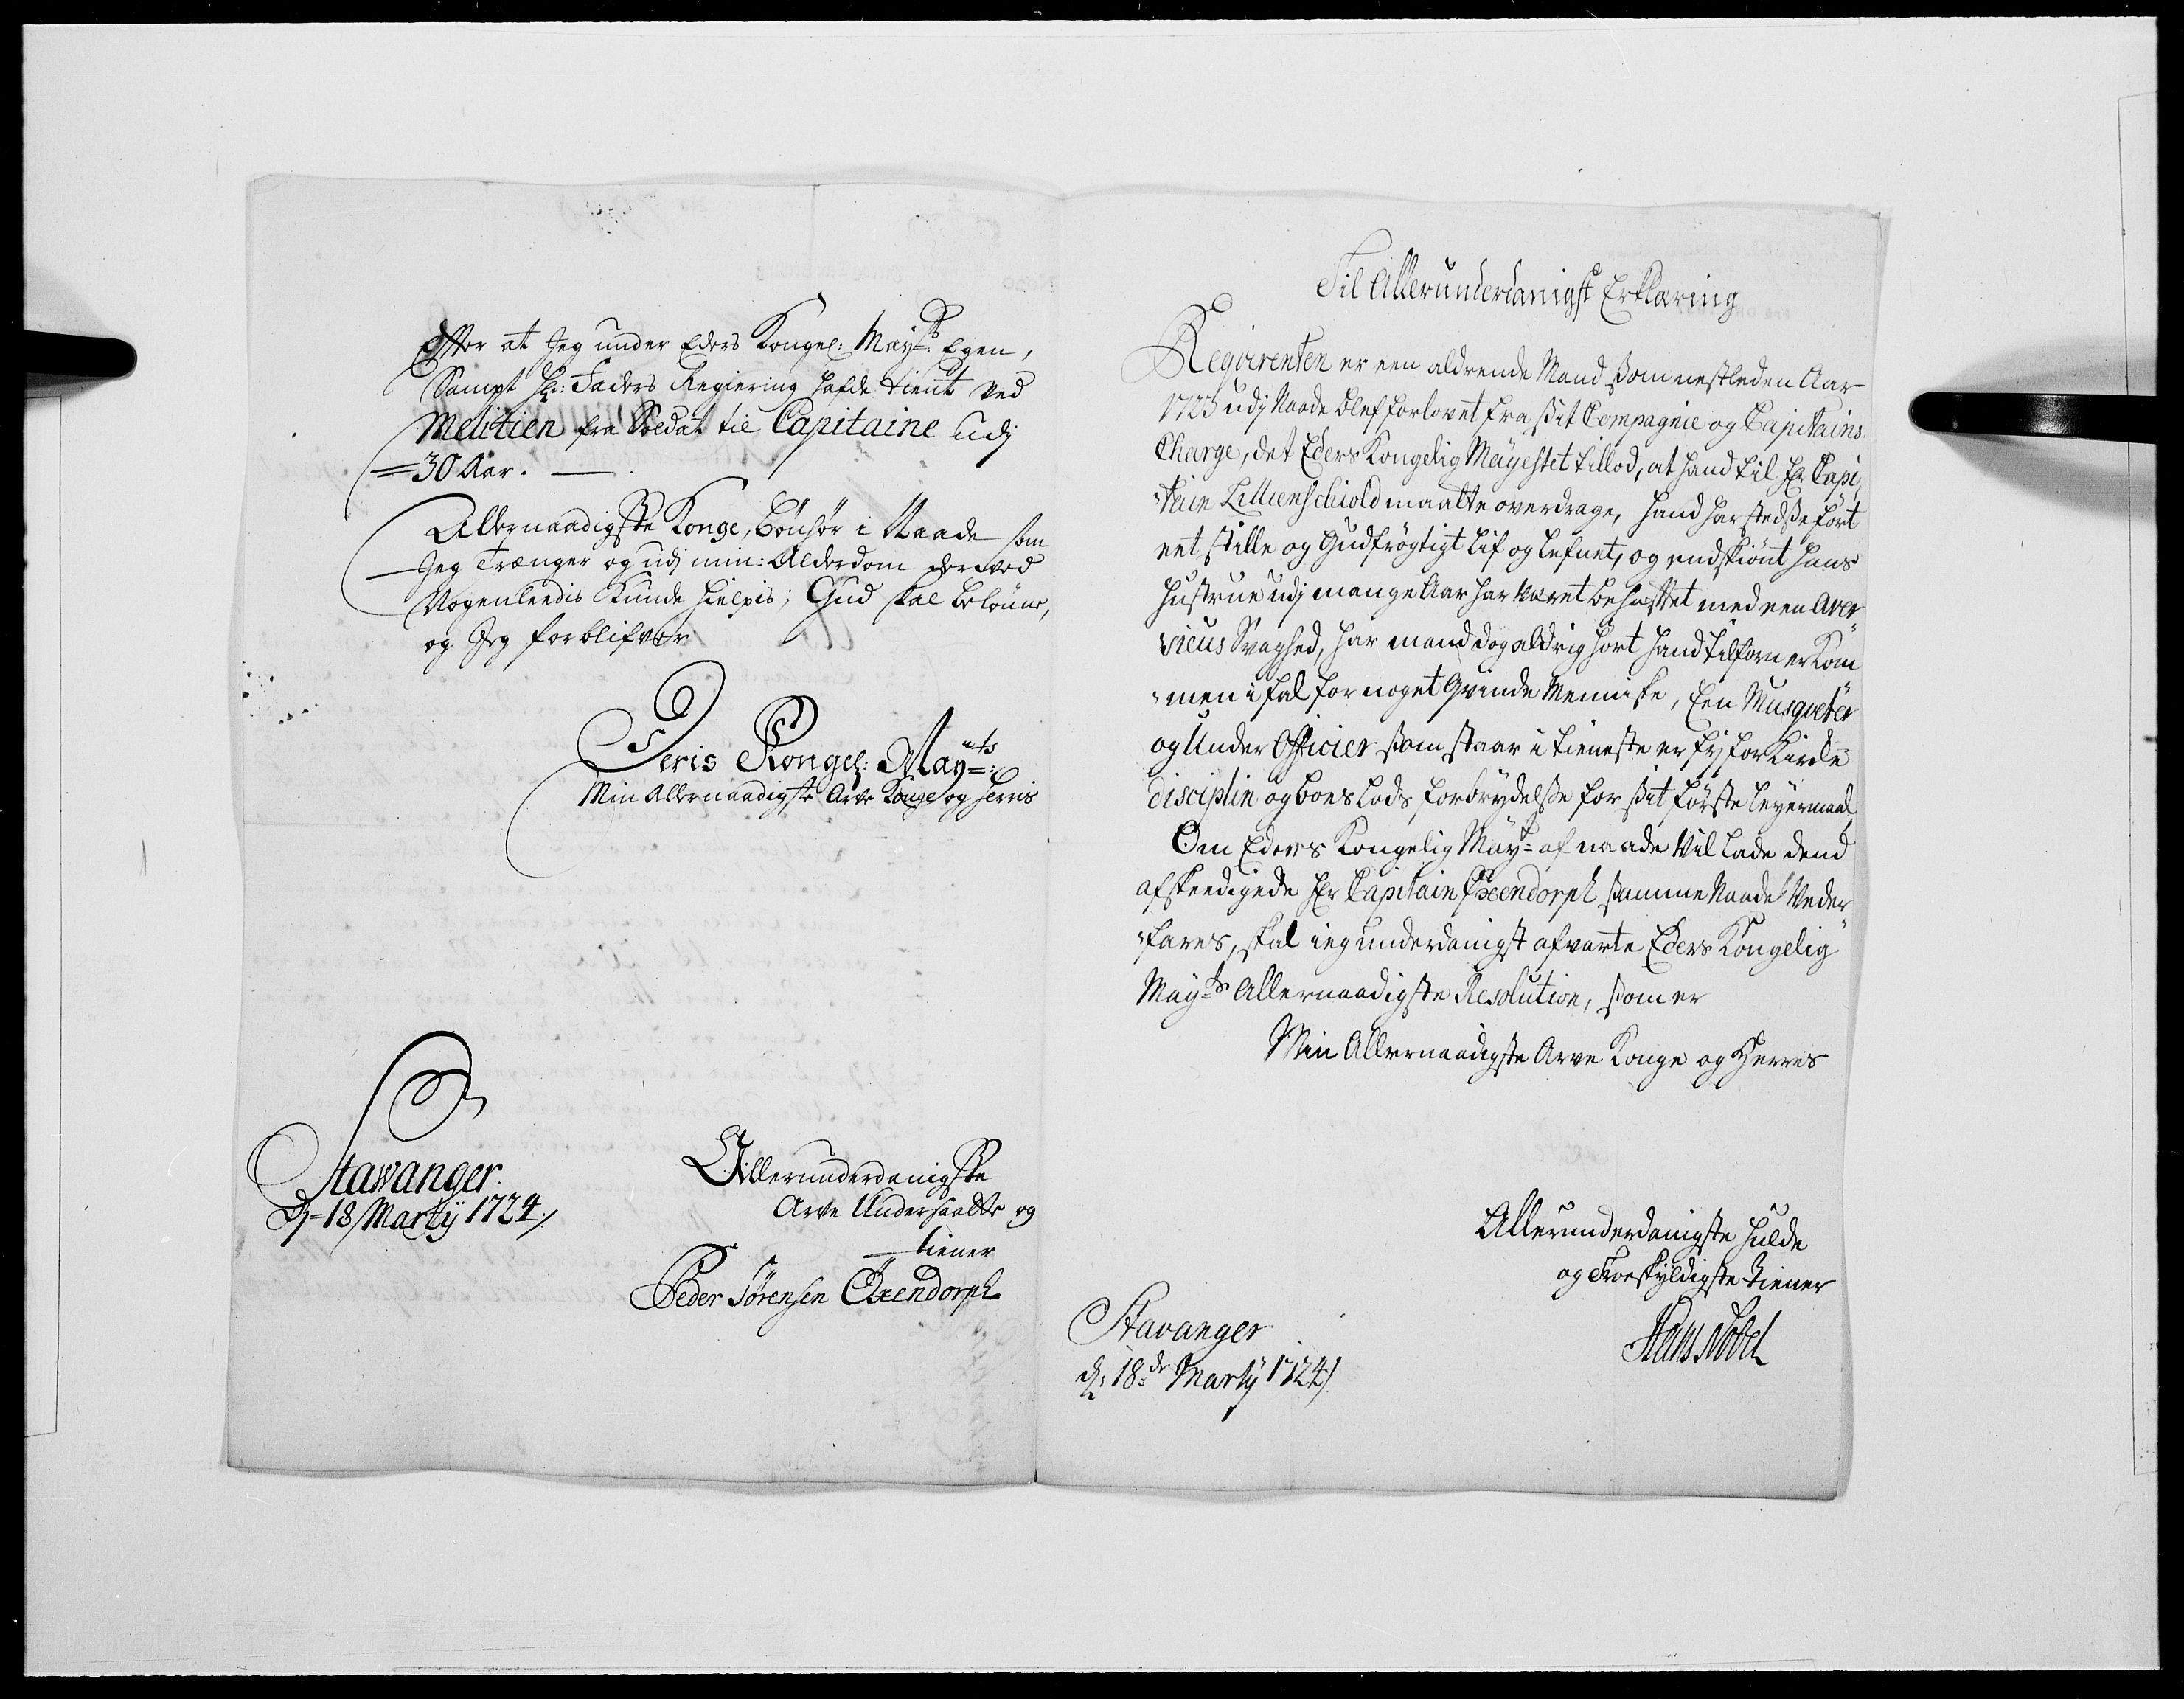 Efter at Jeg under Eders Kongel: Mayts: Egen,
Sampt Hr: Faders Regiering hafde tient ved
Melitien fra Soldat til Capitaine udj
30 Aar.
Allernaadigste Konge, bønhør i Naade som
Jeg Trænger og udj min: Alderdom derved
Nogenleedis Kunde hielpis; Gud skal belønne,
og Jeg forblifver
Deris Kongel: Mayts:
Min Allernaadigste Arve Konge og Herris
Stawanger
D= 18 Martij 1724 ./
Allerunderdanigste
Arve Undersaatte og
tiener
Peder Sørensen Oxendorph
Til Allerunderdanigst Erklæring
Reqvirenten er een aldrende Mand som nestleden Aar
1723 udj Naade blef forlovet fra sit Compagnie og Capitains
Charge, det Eders Kongelig Mayestet tillod, at hand til Hr Capi,
tain Lillienschiold maatte overdrage, hand har stedse ført
eet stille og Gudfrögtigt lif og lefnet, og endskiönt hans
Hustrue udj mange Aar har været behæftet med een
Svaghed, har mand dog aldrig hørt hand tilforn er Kom
men i fal for noget Qvinde Menniske, Een Musqveter
og Under Officier som staar i tieneste er fri for Kircke
disciplin og boes Lods forbrydelse for sit første leyermaal,
Om Eders Kongelig Mayt= af naade Vil lade dend
afskeedigede Hr Capitain Oxendorph samme Naade Veder
fares, skal ieg underdanigst afvarte Eders Kongelig
Mayts Allernaadigste Resolution, som er
Min Allernaadigste Arve Konge og Herres
Allerunderdanigste hulde
og Troeskyldigste tiener
Hans Nobel
Stavanger
d: 18de Martij 1724 /.